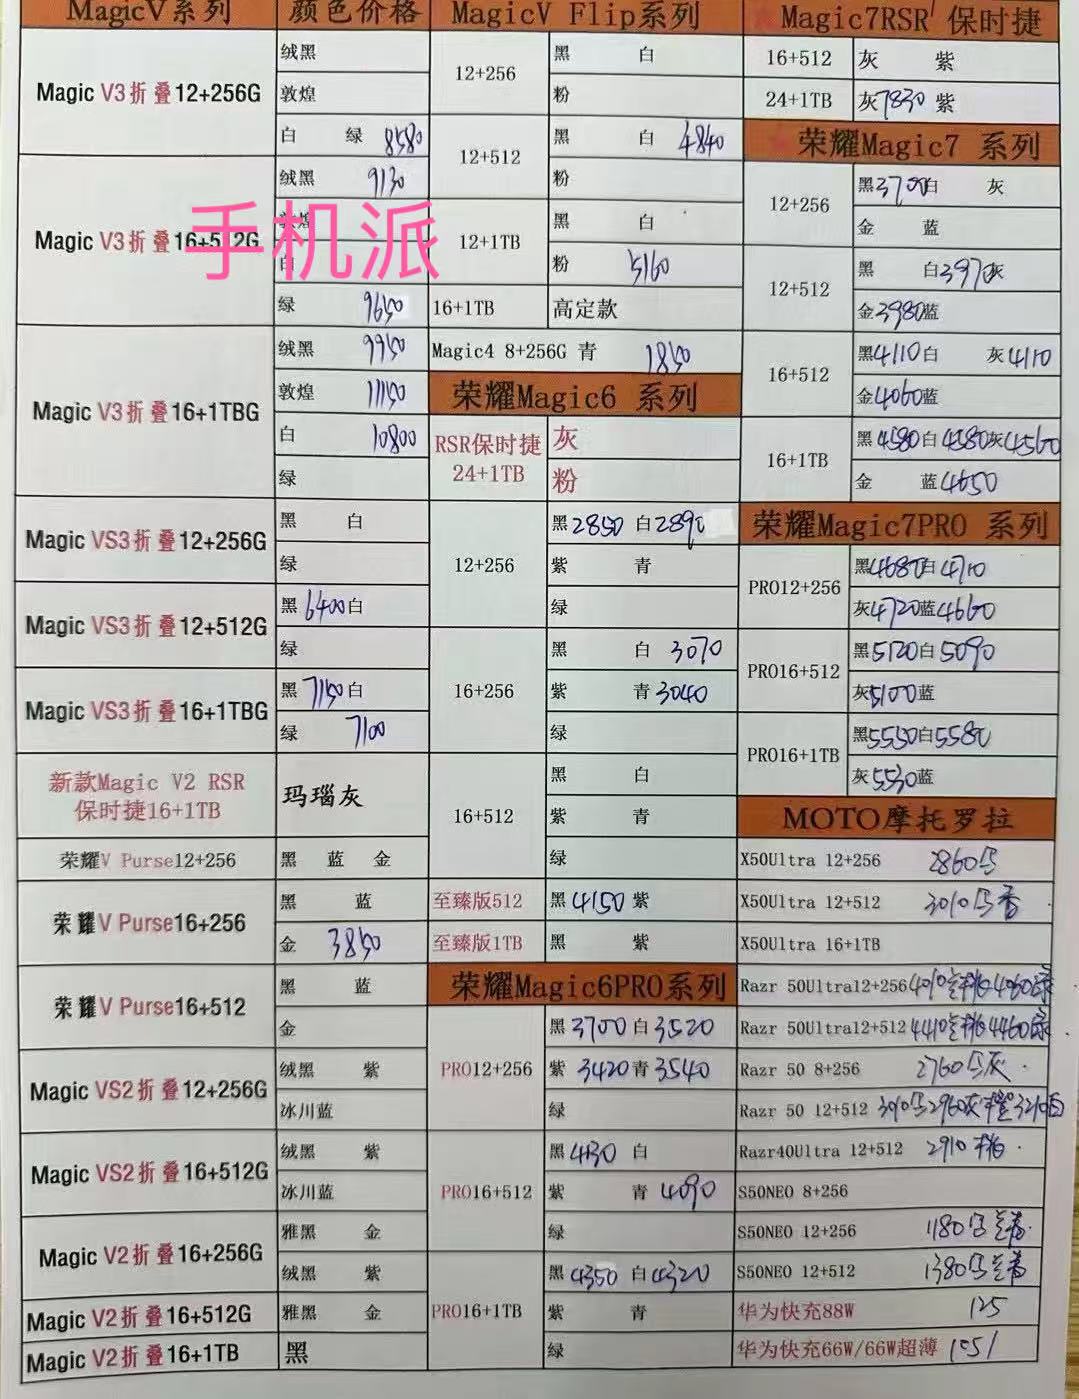 MagicV系列 颜色价格
Magic V3折叠12+256G
绒黑
敦煌
白 绿 8580
Magic V3折叠16+512G
绒黑 9130
敦煌
白
绿 9650
Magic V3折叠16+1TBG
绒黑 9950
敦煌 11150
白 10800
绿
Magic VS3折叠12+256G
黑 白
绿
Magic VS3折叠12+512G
黑6400白
绿
Magic VS3折叠16+1TBG
黑7150白
绿 7100
新款Magic V2 RSR
保时捷16+1TB
玛瑙灰
荣耀V Purse12+256 黑 蓝 金
荣耀V Purse16+256
黑 蓝
金 3850
荣耀V Purse16+512
黑 蓝
金
Magic VS2折叠12+256G
绒黑 紫
冰川蓝
Magic VS2折叠16+512G
绒黑 紫
冰川蓝
Magic V2折叠16+256G
雅黑 金
绒黑 紫
Magic V2折叠16+512G 雅黑 金
Magic V2折叠16+1TB 黑
手机派
MagicV Flip系列
12+256
黑 白
粉
12+512
黑 白 4840
粉
12+1TB
黑 白
粉 5160
16+1TB 高定款
Magic4 8+256G 青 1850
荣耀Magic6 系列
RSR保时捷
24+1TB
灰
粉
12+256
黑2850 白2890
紫 青
绿
16+256
黑 白 3070
紫 青3040
绿
16+512
黑 白
紫 青
绿
至臻版512 黑4150 紫
至臻版1TB 黑 紫
荣耀Magic6PRO系列
PRO12+256
黑3700白3520
紫 3420青3540
绿
PRO16+512
黑4130 白
紫 青 4090
绿
PRO16+1TB
黑4350 白4320
紫 青
绿
Magic7RSR 保时捷
16+512 灰 紫
24+1TB 灰7830 紫
荣耀Magic7 系列
12+256
黑3700白 灰
金 蓝
12+512
黑 白3970灰
金3980蓝
16+512
黑4110白 灰4110
金4060蓝
16+1TB
黑4580白4580灰4560
金 蓝4650
荣耀Magic7PRO 系列
PRO12+256
黑4680白4710
灰4720蓝4660
PRO16+512
黑5120白5090
灰5100蓝
PRO16+1TB
黑5550白5580
灰5530蓝
MOTO摩托罗拉
X50Ultra 12+256 2860
X50Ultra 12+512 3010
X50Ultra 16+1TB
Razr 50Ultra12+256 4010 4060绿
Razr 50Ultra12+512 4410 4460绿
Razr 50 8+256 2760 灰
Razr 50 12+512 2960灰 3210白
Razr40Ultra 12+512 2910
S50NEO 8+256
S50NEO 12+256 1180
S50NEO 12+512 1380
华为快充88W 125
华为快充66W/66W超薄 105/